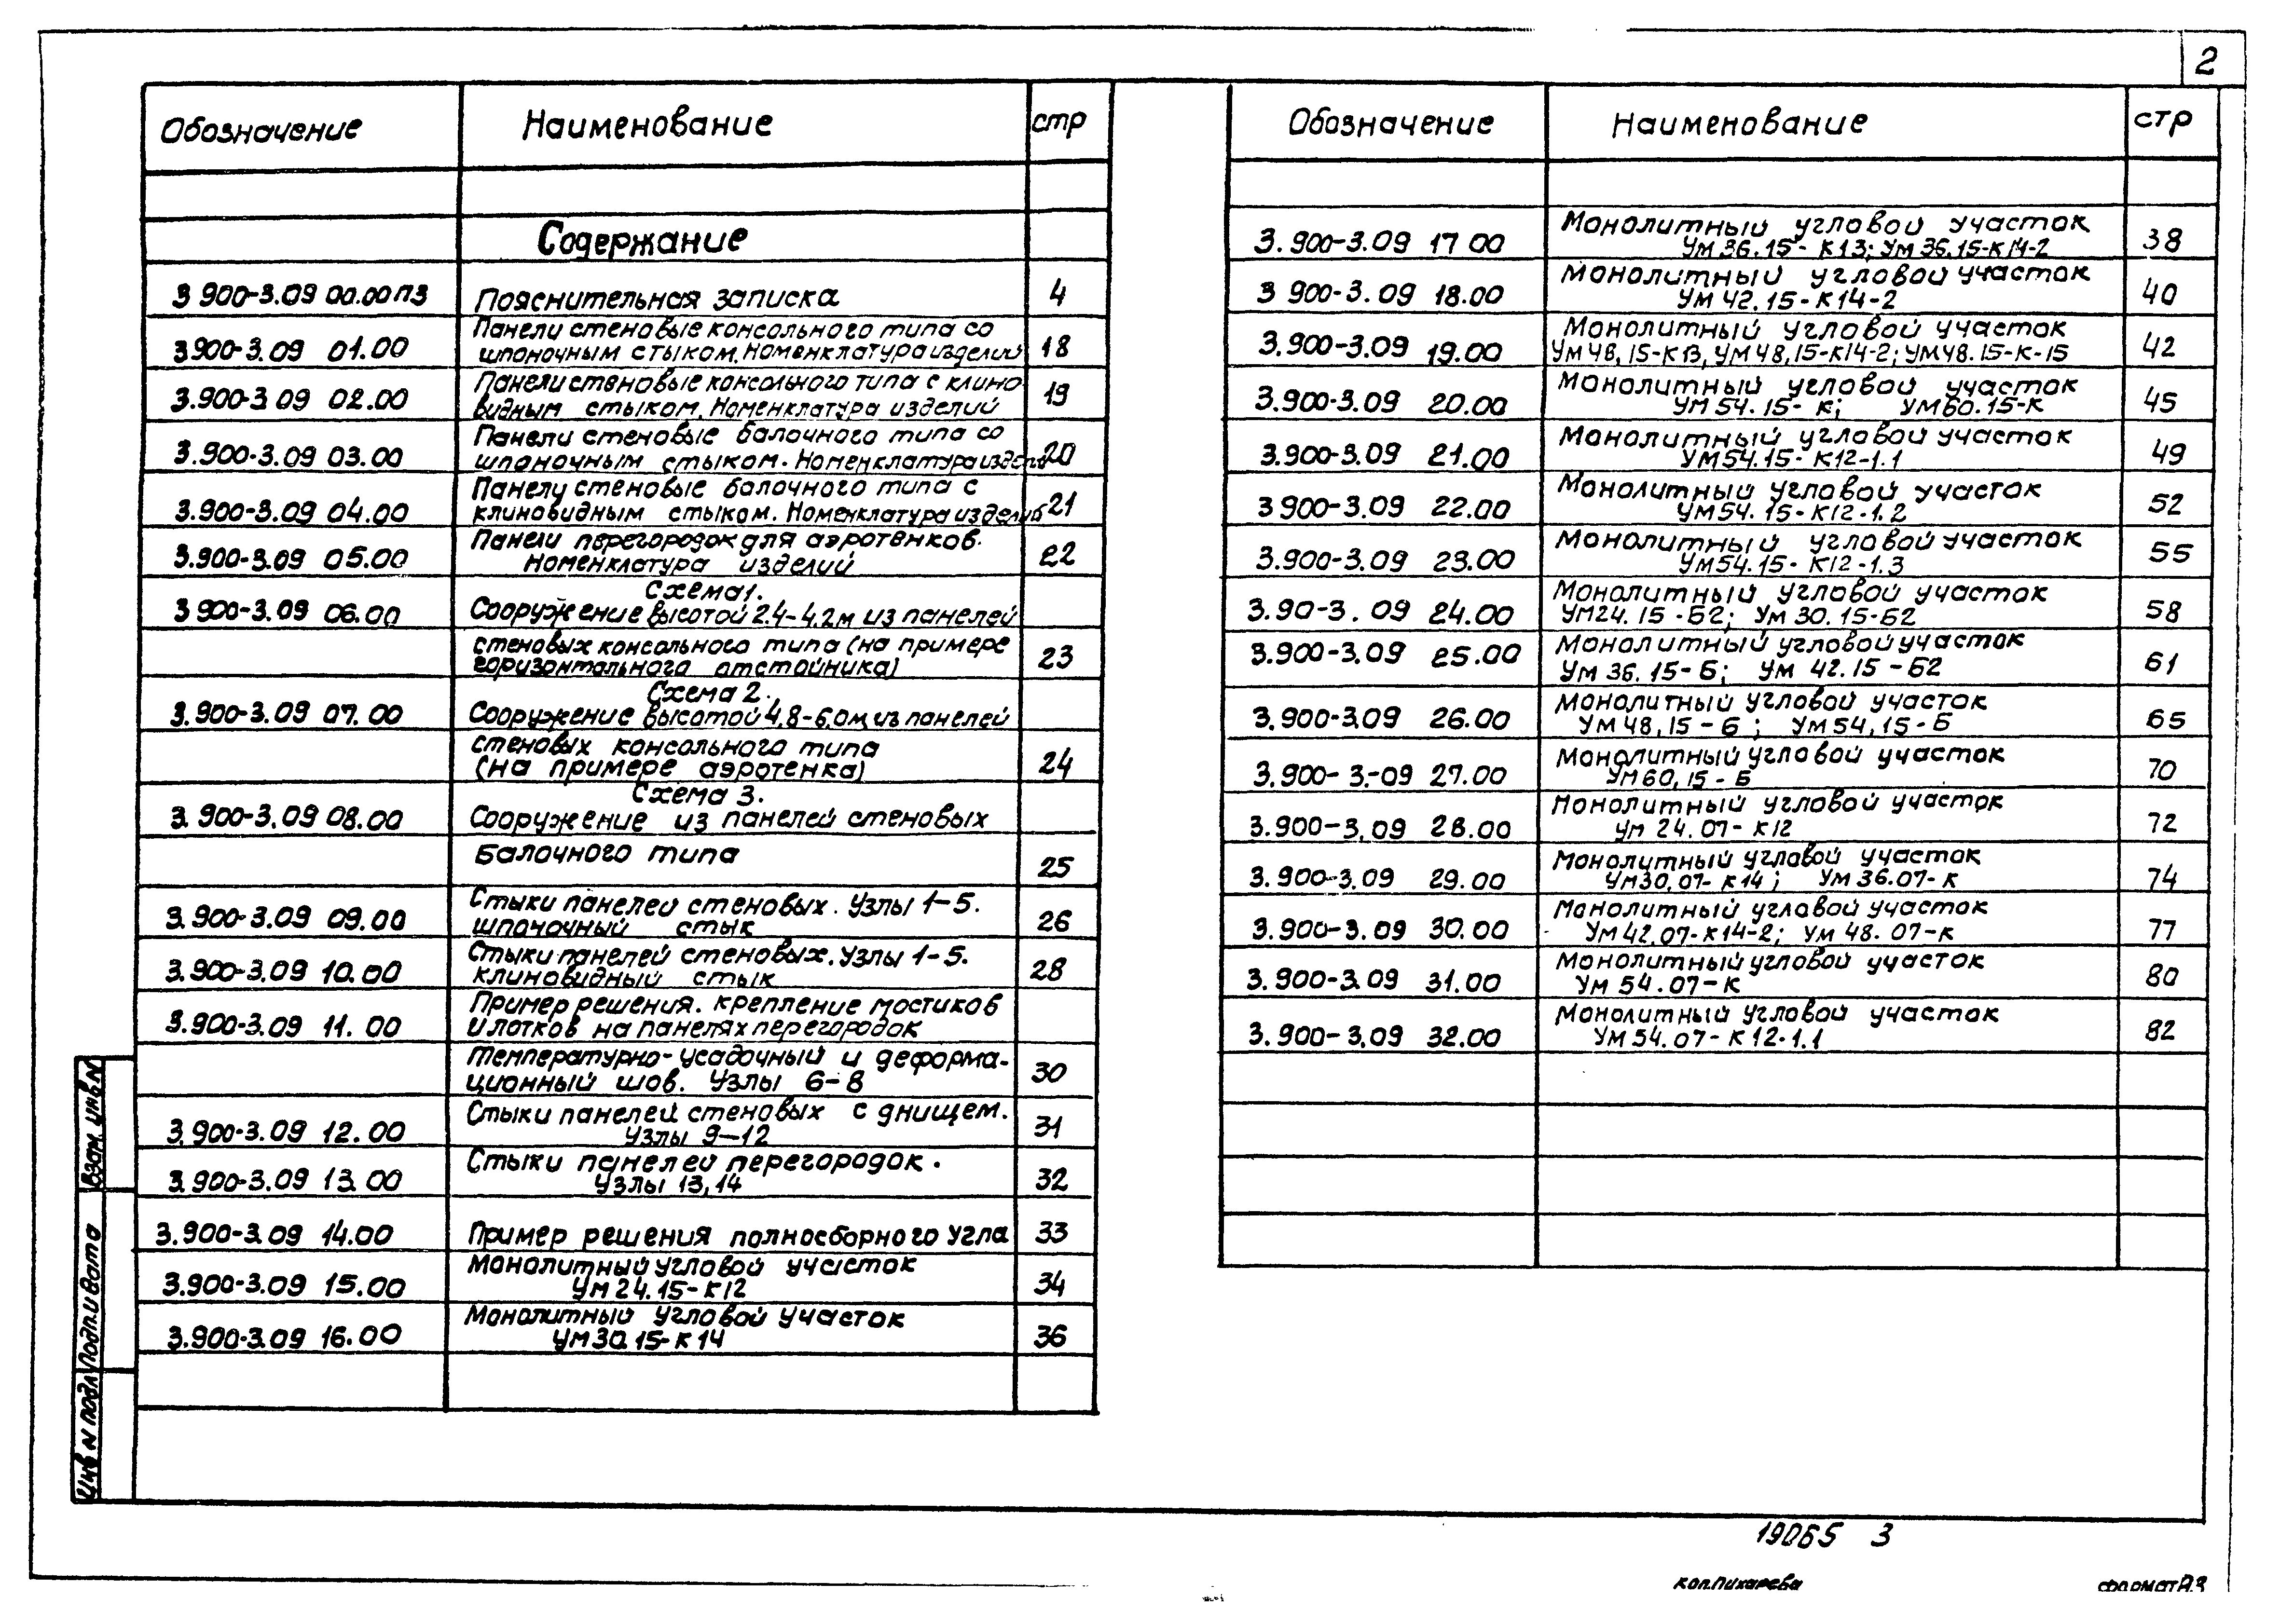 2
Обозначение Наименование стр
Содержание
3 900-3.09 00.00ПЗ Пояснительная записка 4
Панели стеновые консольного типа со
3.900-3.09 01.00 шпоночным стыком. Номенклатура изделий 18
Панели стеновые консольного типа с клино-
3.900-3 09 02.00 видным стыком. Номенклатура изделий 19
Панели стеновые балочного типа со
3.900-3.09 03.00 шпоночным стыком. Номенклатура изделий 20
Панели стеновые балочного типа с
3.900-3.09 04.00 клиновидным стыком. Номенклатура изделий 21
Панели перегородок для аэротенков.
3.900-3.09 05.00 Номенклатура изделий 22
Схема 1.
3 900-3.09 06.00 Сооружение высотой 2.4-4.2м из панелей
стеновых консольного типа (на примере
горизонтального отстойника) 23
Схема 2.
3.900-3.09 07.00 Сооружение высотой 4,8-6,0м из панелей
стеновых консольного типа
(на примере аэротенка) 24
Схема 3.
3.900-3.09 08.00 Сооружение из панелей стеновых
балочного типа 25
Стыки панелей стеновых. Узлы 1-5.
3.900-3.09 09.00 шпоночный стык 26
Стыки панелей стеновых. Узлы 1-5.
3.900-3.09 10.00 клиновидный стык 28
Пример решения. крепление мостиков
3.900-3.09 11.00 и лотков на панелях перегородок
Температурно-усадочный и деформа-
ционный шов. Узлы 6-8 30
Стыки панелей стеновых с днищем.
3.900-3.09 12.00 Узлы 9-12 31
Стыки панелей перегородок.
3.900-3.09 13.00 Узлы 13,14 32
3.900-3.09 14.00 Пример решения полносборного угла 33
Монолитный угловой участок
3.900-3.09 15.00 Ум 24.15-К12 34
Монолитный угловой участок
3.900-3.09 16.00 Ум 30.15-К14 36
Обозначение Наименование стр
Монолитный угловой участок
3.900-3.09 17 00 Ум 36.15-К13; Ум 36.15-К14-2 38
Монолитный угловой участок
3 900-3.09 18.00 Ум 42.15-К14-2 40
Монолитный угловой участок
3.900-3.09 19.00 Ум 48,15-К13, Ум 48,15-К14-2; Ум48.15-К-15 42
Монолитный угловой участок
3.900-3.09 20.00 Ум 54.15-К; Ум60.15-К 45
Монолитный угловой участок
3.900-3.09 21.00 Ум54.15-К12-1.1 49
Монолитный угловой участок
3 900-3.09 22.00 Ум54.15-К12-1.2 52
Монолитный угловой участок
3.900-3.09 23.00 Ум54.15-К12-1.3 55
Монолитный угловой участок
3.90-3.09 24.00 Ум24.15-Б2; Ум 30.15-Б2 58
Монолитный угловой участок
3.900-3.09 25.00 Ум 36.15-Б; Ум 42.15-Б2 61
Монолитный угловой участок
3.900-3.09 26.00 Ум 48,15-Б; Ум54,15-Б 65
Монолитный угловой участок
3.900-3.-09 27.00 Ум60,15-Б 70
Монолитный угловой участок
3.900-3.09 28.00 Ум 24.07-К12 72
Монолитный угловой участок
3.900-3.09 29.00 Ум30,07-К14; Ум 36.07-К 74
Монолитный угловой участок
3.900-3.09 30.00 Ум 42,07-К14-2; Ум 48.07-К 77
Монолитный угловой участок
3.900-3.09 31.00 Ум 54.07-К 80
Монолитный угловой участок
3.900-3.09 32.00 Ум 54.07-К12-1.1 82
Взам. инв N
Подп. и дата
Инв N подл
19065 3
коп. Пихарева формат А.3